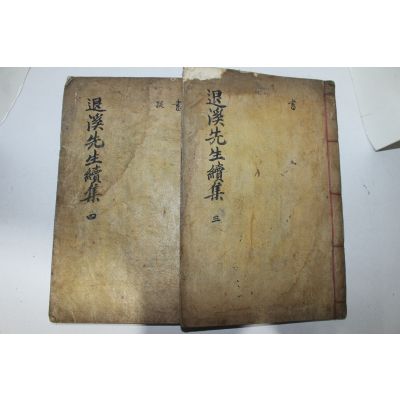 退溪先生續集 三
書
退溪先生續集 四
書